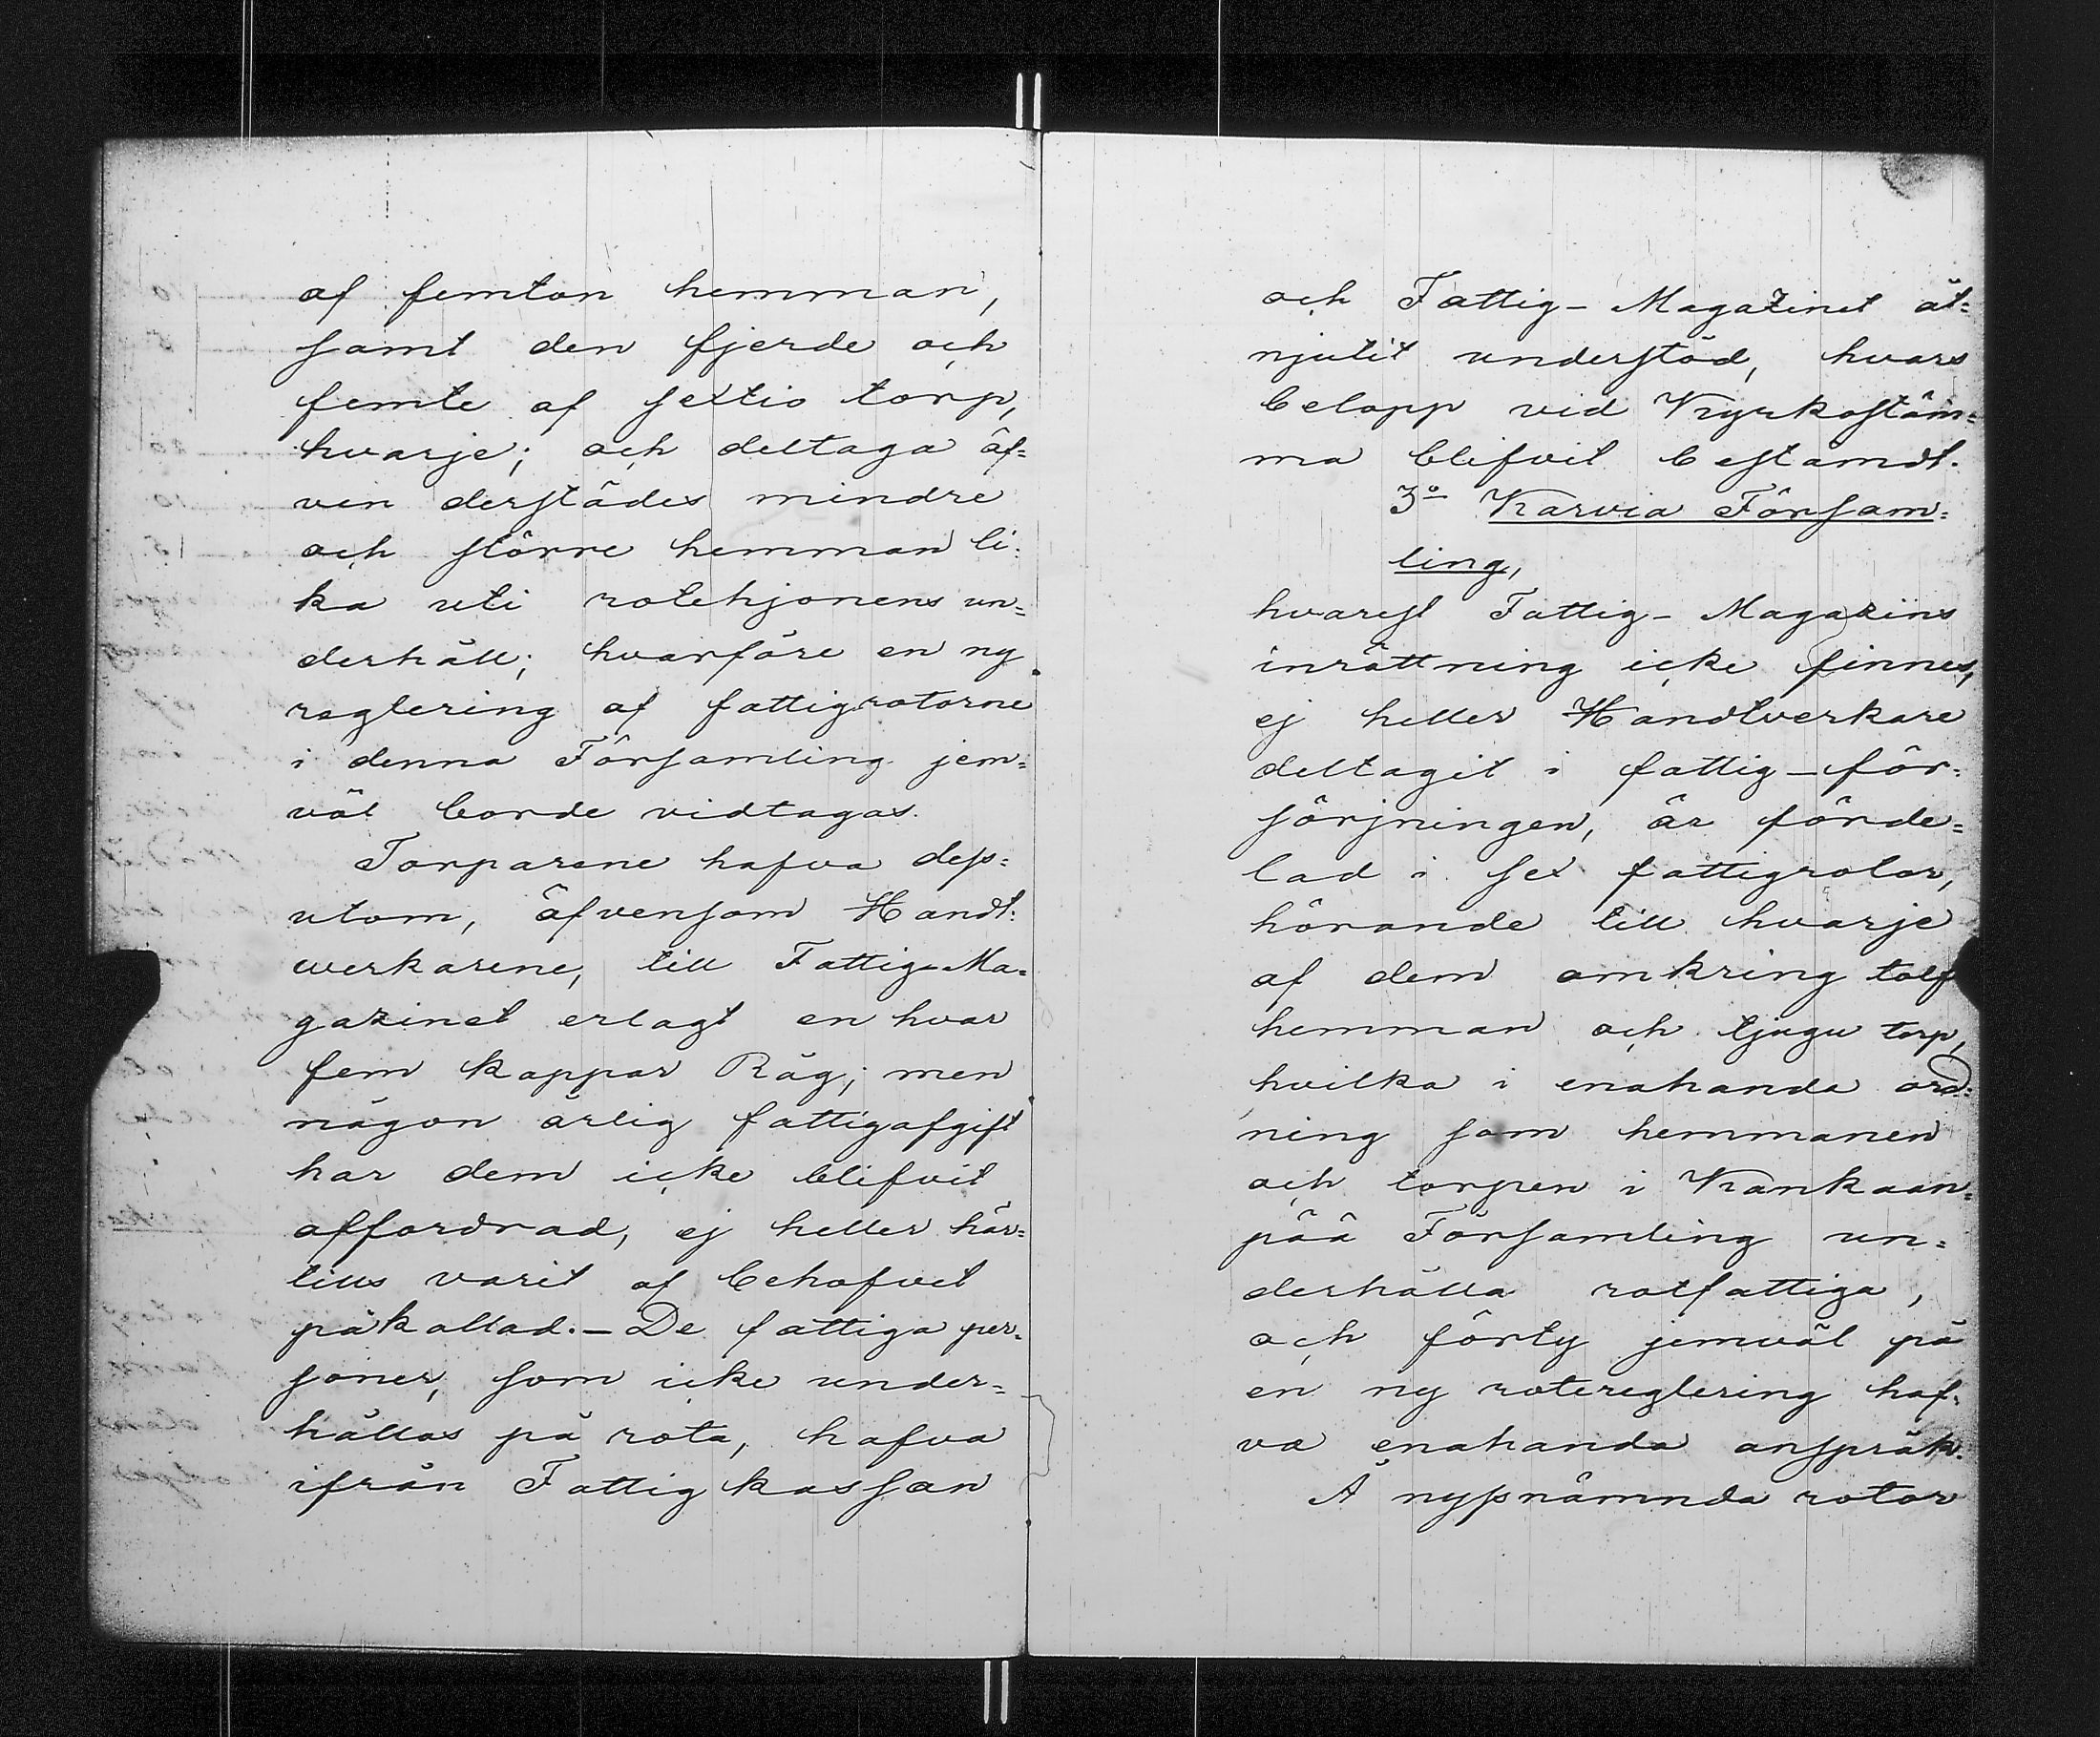 af femton hemman,
samt den fjerde och
femte af sextio torp,
hvarje; och deltaga äf=
ven derstädes mindre
och större hemman li=
ka uti rotehjonens un=
derhåll; hvarföre en ny
reglering af fattigrotorne
i denna Församling jem=
väl borde vidtagas.
Torparene hafva dess=
utom, äfvensom Handt=
werkarene, till Fattig-Ma=
gazinet erlagt en hvar
fem kappar Råg; men
någon årlig fattigafgift
har dem icke blifvit
affordrad, ej heller här=
tills varit af behofvet
påkallad. – De fattiga per=
soner, som icke under=
hållas på rota, hafva
ifrån Fattigkassan
och Fattig-Magazinet åt=
njutit understöd, hvars
belopp vid Kyrkostäm=
ma blifvit bestämdt.
3o Karvia Försam=
ling,
hvarest Fattig-Magazins
inrättning icke finnes,
ej heller Handtverkare
deltagit i fattig-för=
sörjningen, är förde=
lad i sex fattigrotar,
hörande till hvarje
af dem omkring tolf
hemman och tjugu torp,
hvilka i enahanda ord=
ning som hemmanen
och torpen i Kankaan=
pää Församling un=
derhålla rotfattiga,
och förty jemväl på
en ny rotereglering haf=
va enahanda anspråk.
Å nyssnämnda rotor